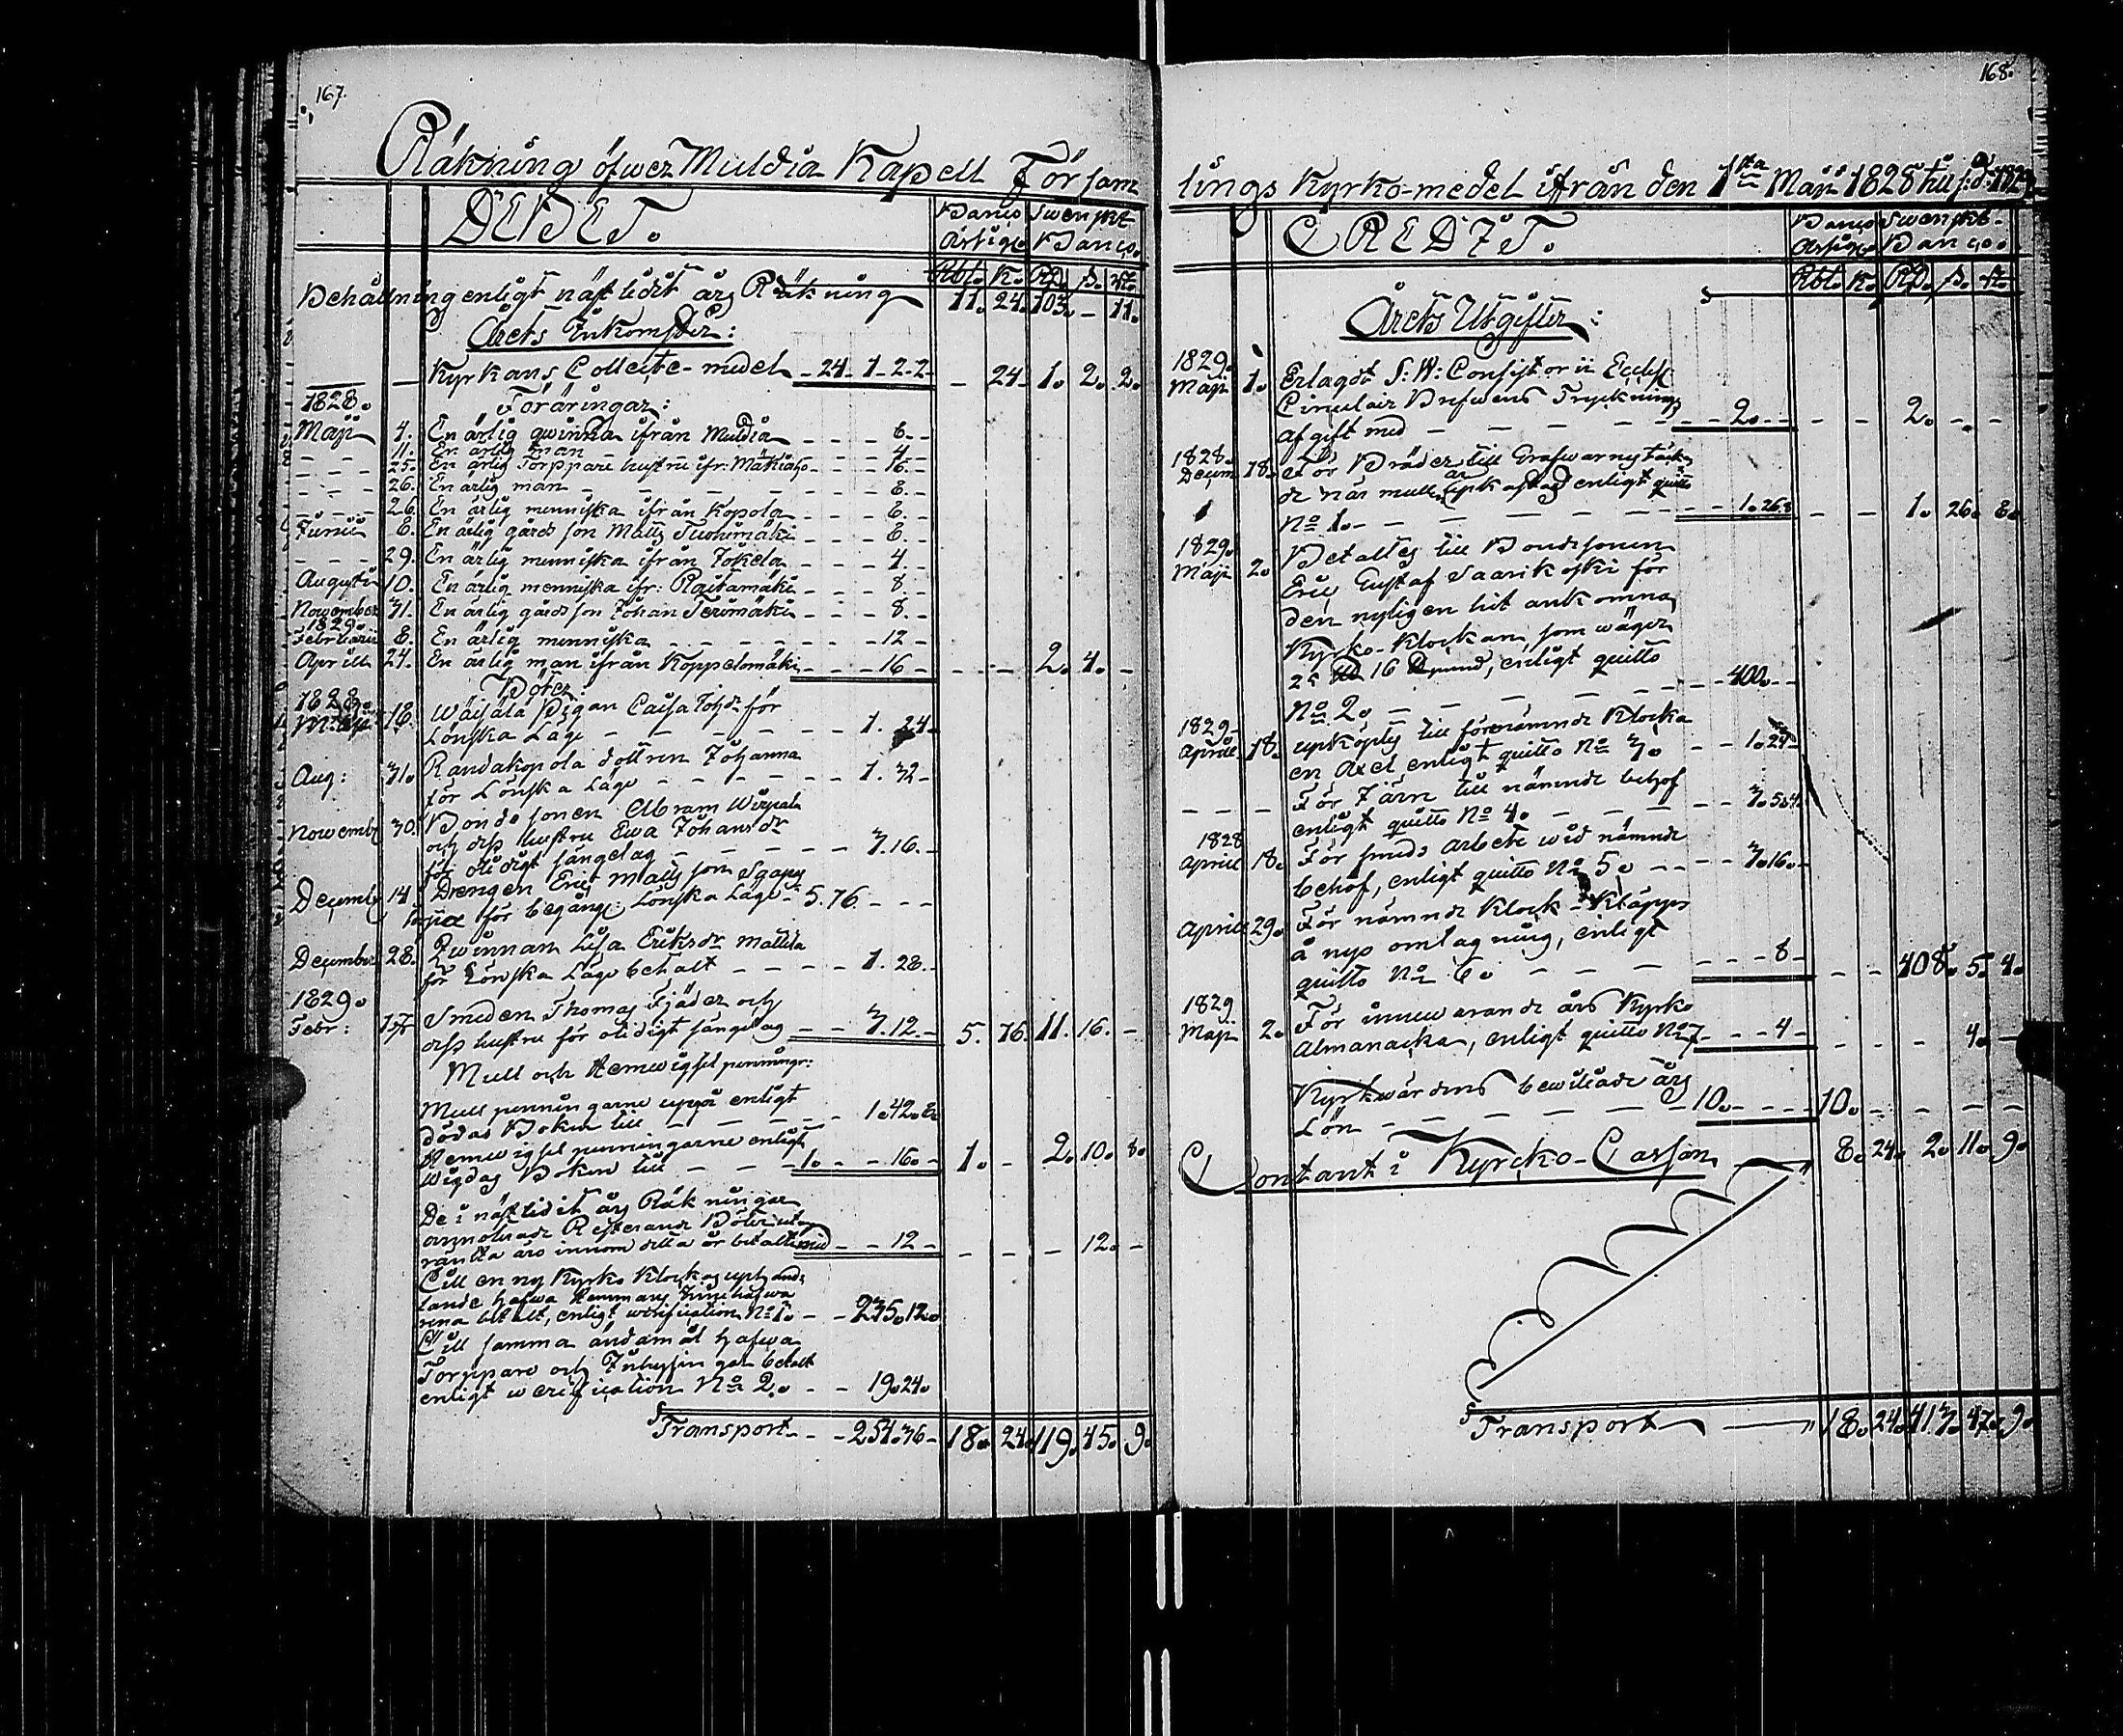 167.
Räkning öfwer Muldia Kapell Församl
DEBET.
Banco Swenskt
Assign Banco.
Rbl. K. Rd. s. rst.
Behållning enligt näst lidit års Räkning 11. 24. 103. - 11.
Årets Inkomster:
Kyrkans Collecte-medel - 24 - 1 - 2 - 2 - - 24 - 1. 2. 2.
1828. Föräringar:
Maji 4. En ärlig qwinna ifrån Muldia - - - 6 - -
- - - 11. En ärlig man - - - 4 - -
- - - 25. En ärlig Torppare hustru ifr: Mäkiaho - - - 16 - -
- - - 26. En ärlig man - - - - 8 - -
- - - 26. En ärlig menniska ifrån Kopola - - - 6 - -
Junii 8. En ärlig gårds son Matts Tuohimäki - - - 8 -
- - 29. En ärlig menniska ifrån Jokela - - - 4 -
Augusti 10. En ärlig menniska ifr: Rautamäki - - - 8 -
November 31. En ärlig gårds son Johan Terimäki - - - 8 -
1829.
Februarii 8. En ärlig menniska - - - - - 12 -
Aprill 24. En ärlig man ifrån Koppelomäki - - - 16 - - - - 2. 4. -
1828. Böter:
Maji 18. Wäisälä Pigan Caisa Johdr för
Lönska Läge - - - - - 1. 24 -
Aug: 31. Randakopola dottren Johanna
för Lönska Läge - - - - 1. 32 -
Novembr 30. Bonde sonen Abram
och dess hustru Ewa Johansdr
för olidigt sängelag - - - - - 3. 16. -
Decembr 14. Drengen Eric Matts son
för begångt Lönska Läge - 5. 76 - - -
December 28. Qwinnan Lisa Eriksdr
för Lönska Läge betalt - - - - 1. 28. -
1829.
Febr: Smeden Thomas Fjäder och
dess hustru för olidigt sängelag - - 3. 12. - 5. 76. 11. 16. -
Mull och Hemwigsel penningr:
Mull penningarne uppå enligt
dödas Boken till - - - - 1. 42. 8.
Hemwigsel penningarne enligt
Wigdas Boken till - - - 1. - - 16. - 1. - 2. 10. 8.
De i näst lidit års Räkningar
annoterade Resterande Böter utan
ränta äro innom detta år betalte med - - 12 - - - - 12. -
Till en ny Kyrko Klockas uphand-
lande hafwa Hemmans Innehafwa
rena betalt, enligt werification No 1. - - 235. 12.
Till samma ändamål hafwa
Torppare och Inhysingar betalt
enligt werification No 2. - - 19. 24.
Transport - - - 254. 36 - 18. 24. 119. 45. 9.
168.
lings Kyrko-medel ifrån den 1sta Maji 1828 till s: d: 1829
CREDIT.
Banco Swenskt
Assign Banco.
Rbl. K. Rd. s. rst.
Årets Utgifter:
1829.
Maji 1. Erlagdt S: W: Consistorii Eccles
Circulair Brefwens Trycknings
afgift med - - - - - 2. - - - - 2. - -
1828.
Decem 18. För Bräder till Grafwarnas täckan
de när mull är upkastad enligt quitto
No 1. - - - - - 1. 26. 8 - - 1. 26. 8.
1829.
Maji 2. Betaltes till Bondesonen
Eric Gustaf Saarikoski för
den nyligen hit ankomna
Kyrko-Klockan, som wäger
16 pund, enligt quitto
No 2. - - - - - 400. - -
1829.
April 18. upköptes till förenämnde Klocka
en Axel enligt quitto No 3. - - 1. 24 -
- - - För Järn till nämnde behof
enligt quitto No 4. - - - - 3. 5. 4.
1828
April 18. För smeds arbete wid nämnde
behof, enligt quitto No 5. - - - - 3. 16. -
April 29. För nämnde Klock-Kläpps
å nyo omlagning, enligt
quitto No 6. - - - - - 8 - - - 408. 5. 4.
1829
Maji 2. För innewarande års Kyrko
Almanacka, enligt quitto No 7 - - 4 - - - - 4. -
Kyrkwärdens bewiljade års
Lön - - - - - 10. - - - 10. - - - -
Contant i Kyrcko-Cassan - 8. 24. 2. 11. 9.
Transport - 18. 24. 417. 47. 9.